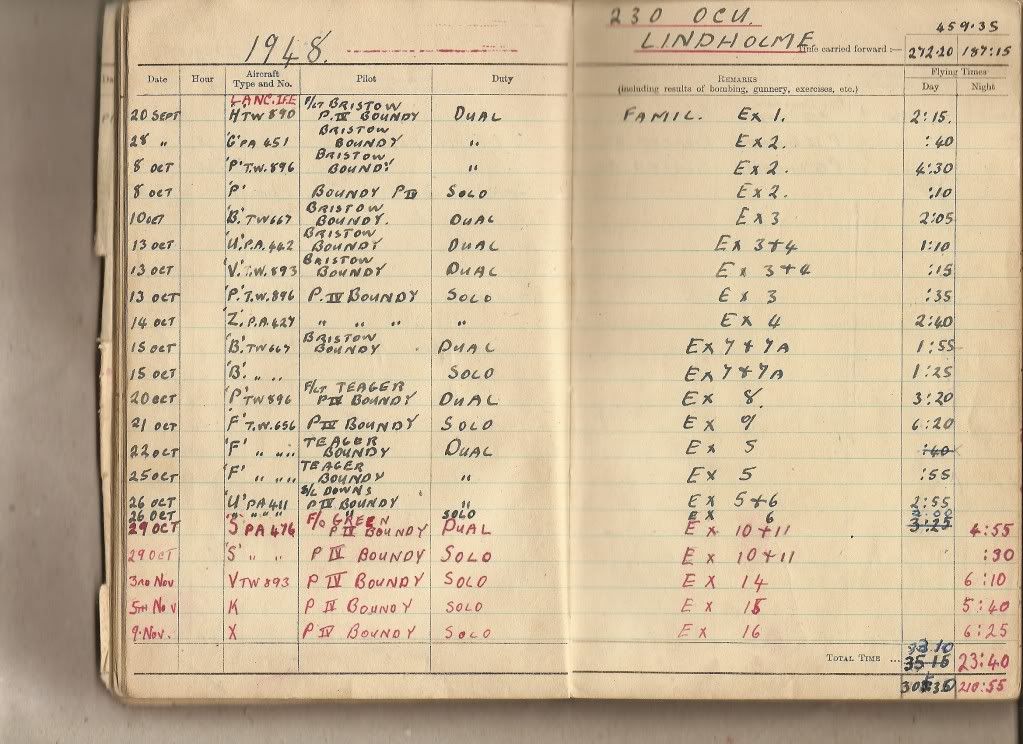 230 OCU.
1948.
LINDHOLME
459·35
Time carried forward :—
272·20 187:15
Date Hour Aircraft Type and No. Pilot Duty REMARKS (including results of bombing, gunnery, exercises, etc.) Flying Times Day Night
LANC. F/LT BRISTOW
20 SEPT 'H' TW 890 P.IV BOUNDY DUAL FAMIL. Ex 1. 2:15.
BRISTOW
28 „ 'G' PA 451 BOUNDY „ Ex 2. :40
BRISTOW
8 OCT 'P' T.W. 896 BOUNDY „ Ex 2. 4:30
8 OCT 'P' BOUNDY P IV SOLO Ex 2. :10
BRISTOW
10 OCT 'B'. TW 667 BOUNDY. DUAL Ex 3 2:05
BRISTOW
13 OCT 'U'. P.A. 442 BOUNDY DUAL Ex 3+4 1:10
BRISTOW
13 OCT 'V'. T.W. 893 BOUNDY DUAL Ex 3+4 :15
13 OCT 'P'. T.W. 896 P.IV BOUNDY SOLO Ex 3 :35
14 OCT 'Z'. P.A. 427 „ „ „ „ Ex 4 2:40
BRISTOW
15 OCT 'B'. TW 667 BOUNDY DUAL Ex 7+7A 1:55
15 OCT 'B'. „ „ SOLO Ex 7+7A 1:25
F/LT TEAGER
20 OCT 'P' TW 896 P IV BOUNDY DUAL Ex 8. 3:20
21 OCT 'F' T.W. 656 P IV BOUNDY SOLO Ex 9 6:20
TEAGER
22 OCT 'F' „ „ „ BOUNDY DUAL Ex 5 :40
TEAGER
25 OCT 'F' „ „ „ BOUNDY „ Ex 5 :55
S/L DOWNS
26 OCT 'U' PA 411 P IV BOUNDY „ Ex 5+6 2:55
26 OCT „ „ „ „ SOLO Ex 6 2:00
F/O GREEN 3:25
29 OCT 'S' PA 476 P IV BOUNDY DUAL Ex 10+11 4:55
29 OCT 'S' „ „ P IV BOUNDY SOLO Ex 10+11 :30
3RD Nov V TW 893 P IV BOUNDY SOLO Ex 14 6:10
5TH Nov K P IV BOUNDY SOLO Ex 15 5:40
9. Nov. X P IV BOUNDY SOLO Ex 16 6:25
TOTAL TIME ... 35 15 23:40
210:55